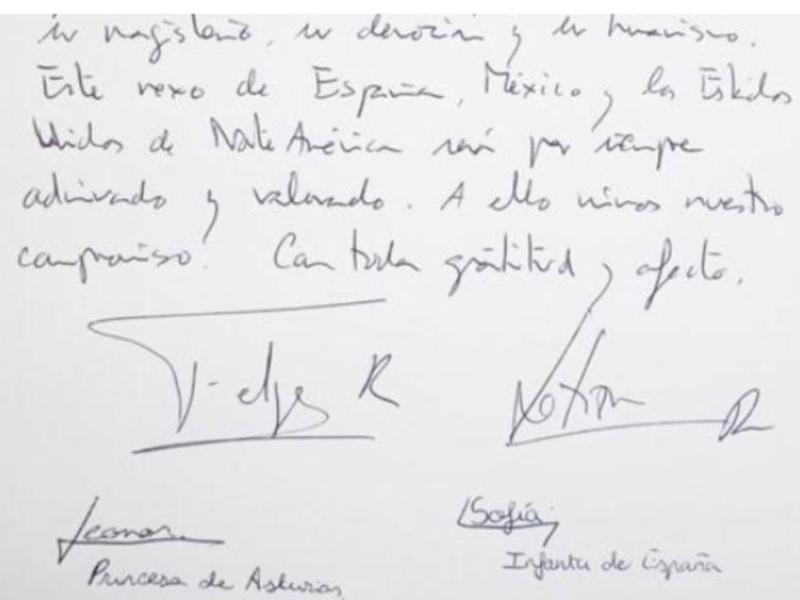 su magisterio, su devoción y su humanismo.
Este nexo de España, México y los Estados
Unidos de Norte América será por siempre
admirado y valorado. A ello unimos nuestro
compromiso. Con toda gratitud y afecto.
Felipe R
Letizia R
Leonor
Princesa de Asturias
Sofía
Infanta de España